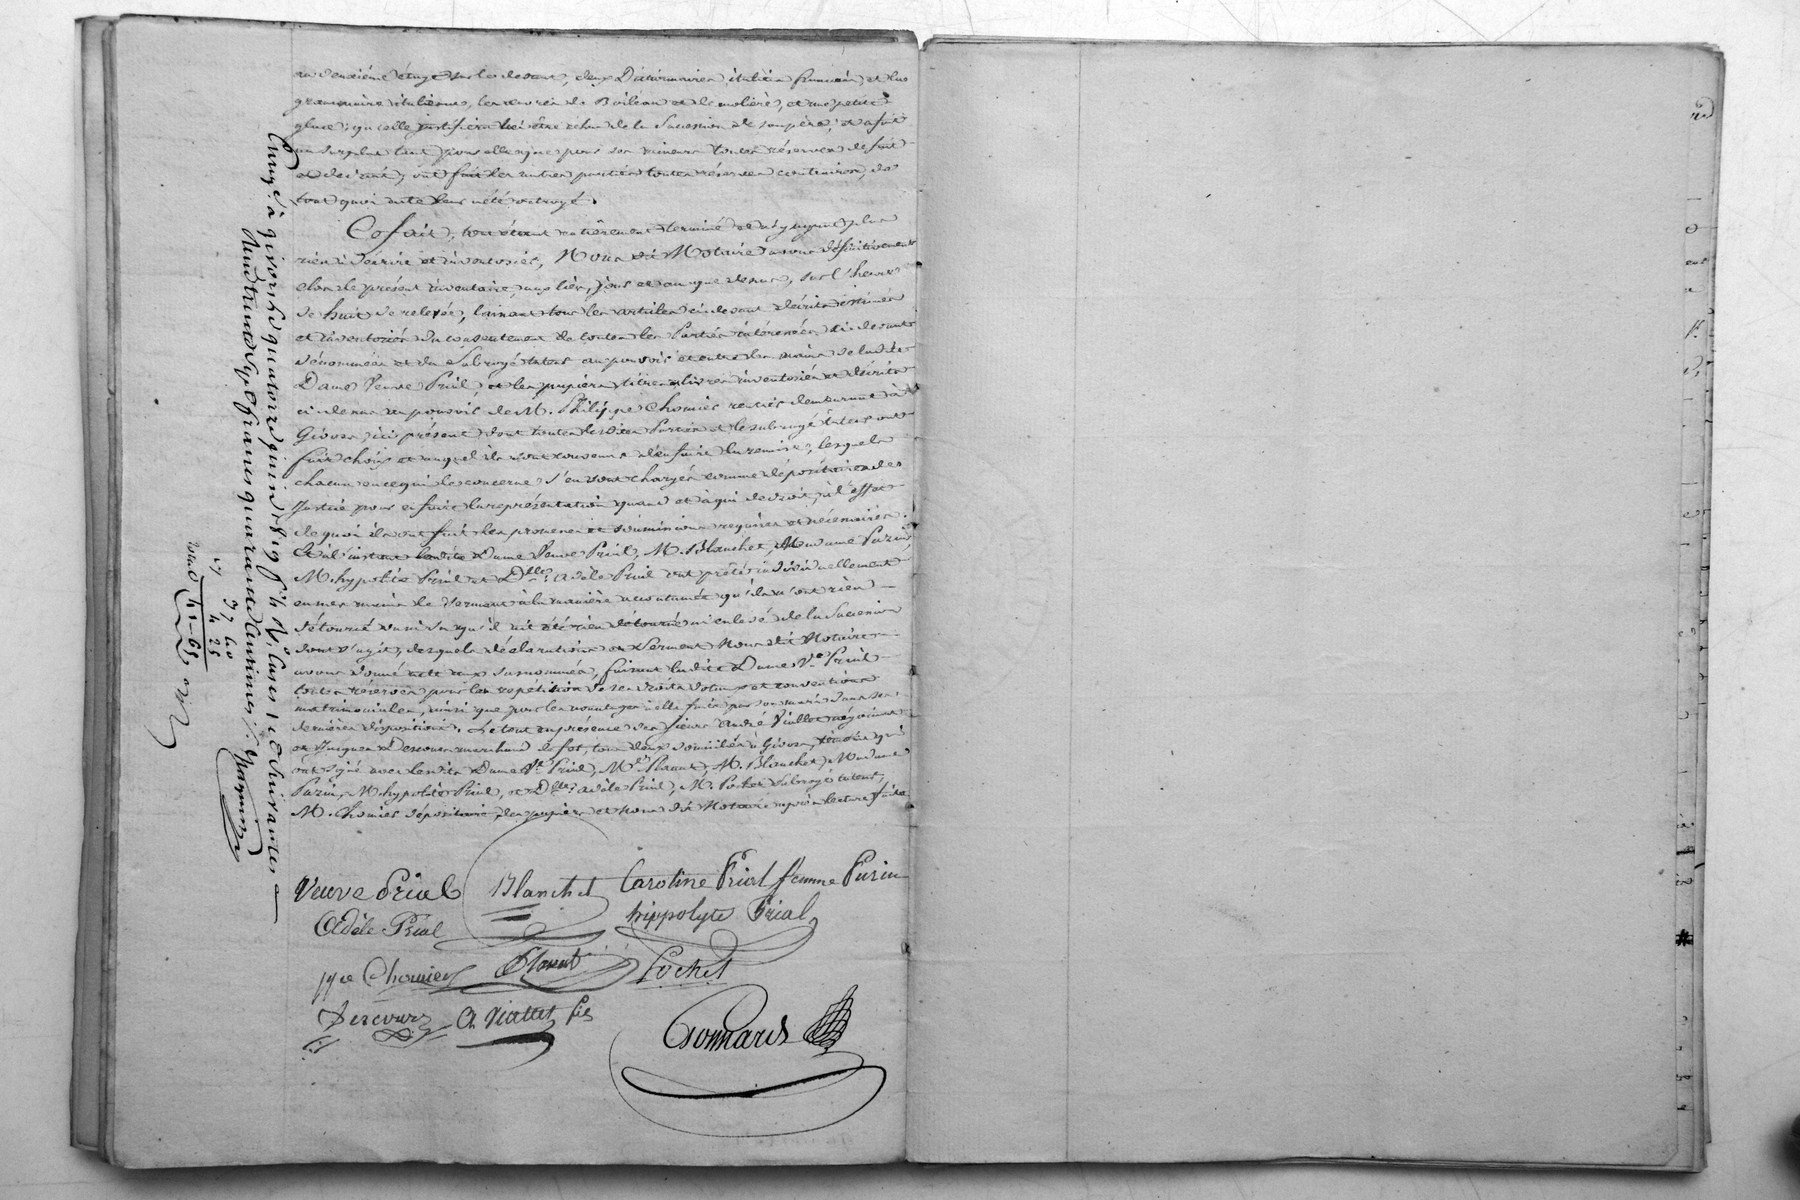 au deuxiéme étage sur le devant, deux Dictionnaires italien français et une
grammaire italienne, les œuvres de Boileau et de moliére, et une petite
glace; qu'elle justifiera lui être échu de la Succession de son pére; et a fait
au surplus tant pour elle que pour ses mineurs toutes réserves de fait
et de droit, ont fait les autres parties toutes réserves contraires, de
tout quoi acte leur a été octroyé.
Ce fait, tout étant entiérement terminé et n'y ayant plus
rien à décrire et inventorier, Nous dit Notaire avons définitivement
clos le présent inventaire, aux lieu, jour et an que dessus, sur l'heure
de huit de relevée, laissant tous les articles ci devant décrits estimés
et inventoriés du consentement de toutes les Parties intéressées ci devant
dénommées et du Subrogé tuteur au pouvoir et entre les mains de ladite
Dame Veuve Prial, et les papiers titres et livres inventoriés et décrits
ci dessus au pouvoir de M. Philippe Chomier rentier demeurant à
Givors, ici présent dont toutes lesdites Parties et le subrogé tuteur ont
fait choix et auquel ils sont convenus d'en faire la remise, lesquels
chacun en ce qui le concerne s'en sont chargés comme dépositaires de
Justice pour en faire la représentation quand et à qui de droit, à l'effet
de quoi ils ont fait les promesses et soumissions requises et nécessaires.
Et à l'instant ladite Dame Veuve Prial, M. Blanchet, Madame Purin,
M. hypolite Prial et Dlle. adèle Prial ont prêté individuellement
en mes mains le serment à la maniére accoutumée qu'ils n'ont rien
détourné vu ni su qu'il ait été rien détourné ni enlevé de la Succession
dont s'agit, desquels déclarations et Serment Nous dit Notaire
avons donné acte aux susnommés, faisant ladite Dame Ve. Prial
toutes réserves pour les répétitions de ses droits dotaux et conventions
matrimoniales, ainsi que pour les avantages à elle faits par son mari dans ses
derniéres dispositions. Le tout en présence des sieurs André Viallet négociant
et Jacques Descours marchand de fer, tous deux domiciliés à Givors, témoins qui
ont signé avec lesdits Dame Ve. Prial, Me. Planut, M. Blanchet, Madame
Purin, M. hypolite Prial, et Dlle. adèle Prial, M. Pochet subrogé tuteur,
M. Chomier dépositaire des papiers et Nous dit Notaire aprés lecture faite
Veuve Prial Blanchet Caroline Prial femme Purin
Adèle Prial hippolyte Prial
Chomier Planut Pochet
Descours A. Viallet fils
Bonnard
Enregé. à givors le quatorze juin
reçu trente sept francs quarante centimes
37 40
4 25
41-65